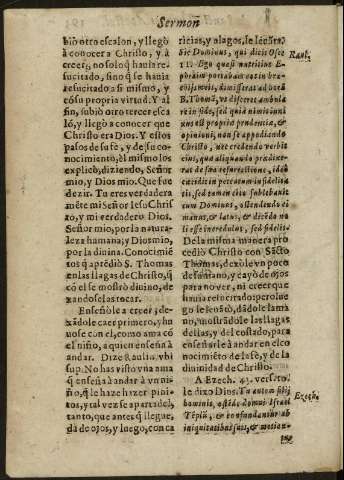 Sermon
biò otro escalon, y llegò
à conocer a Christo, y à
creer, no solo q̃ hauia re-
sucitado, sino q̃ se hauia
resucitado a si mismo, y
cõ su propria virtud. Y al
fin, subiò otro tercer esca
lõ, y llegò a conocer que
Christo era Dios. Y estos
passos de su fè, y de su co-
nocimiẽto, èl mismo los
explicò, diziendo, Señor
mio, y Dios mio. Que fue
dezir. Tu eres verdadera
mẽte mi Señor Iesu Chris
to, y mi verdadero Dios.
Señor mio, por la natura-
leza humana; y Dios mio,
por la diuina. Conocimiẽ
tos q̃ aprẽdiò S. Thomas
en las llagas de Christo, q̃
con el se mostrò diuino, de
xandoselas tocar.
Enseñòle a creer, de-
xãdole caer primero, y hu
uose con el, como ama cõ
el niño, a quien enseña à
andar. Dize Raulin. vbi
sup. No has visto vna ama
q̃ enseña à andar à vn ni-
ño, q̃ le haze hazer pini-
tos, y tal vez se aparta del,
tanto, que antes q̃ llegue,
dà de ojos, y luego, con ca
ricias, y alagos, le leuãta?
Sic Dominus, qui dicit Osee
11. Ego quasi nutritius E-
phraim portabam eos in bra-
chijs meis, dimisit ad horã
B. Thomã, vt discret ambula
re in fide, sed quia nimiùm in
nixus est propriæ prudentiæ, &
opinioni, non se appodiendo
Christo, nec credendo verbis
eius, qua aliquando prædixe-
rat de sua resurrectione, ideò
cecidit in peccatum infidelita
tis, sed tamen citò subleuabit
eum Dominus, ostendendo ei
manus, & latus, & dicẽdo no
li esse incredulus, sed fidelis.
De la misma manera pro
cediò Christo con Sãcto
Thomas, dexòle vn poco
de su mano, y cayò de ojos
para no ver, ni creer que
hauia resucitado: pero lue-
go le leuãtò, dãdole la ma
no, mostrãdole las llagas
dellas, y del costado, para
enseñarle à andar en el co
nocimiẽto de la fè, y de la
diuinidad de Christo.
A Ezech. 43. vers. 10.
le dixo Dios. Tu autem fili
hominis, ostẽde domui Israel
Tẽplũ, & confundantur ab
iniquitatibus suis, & metian-
Raul.
Ezech.